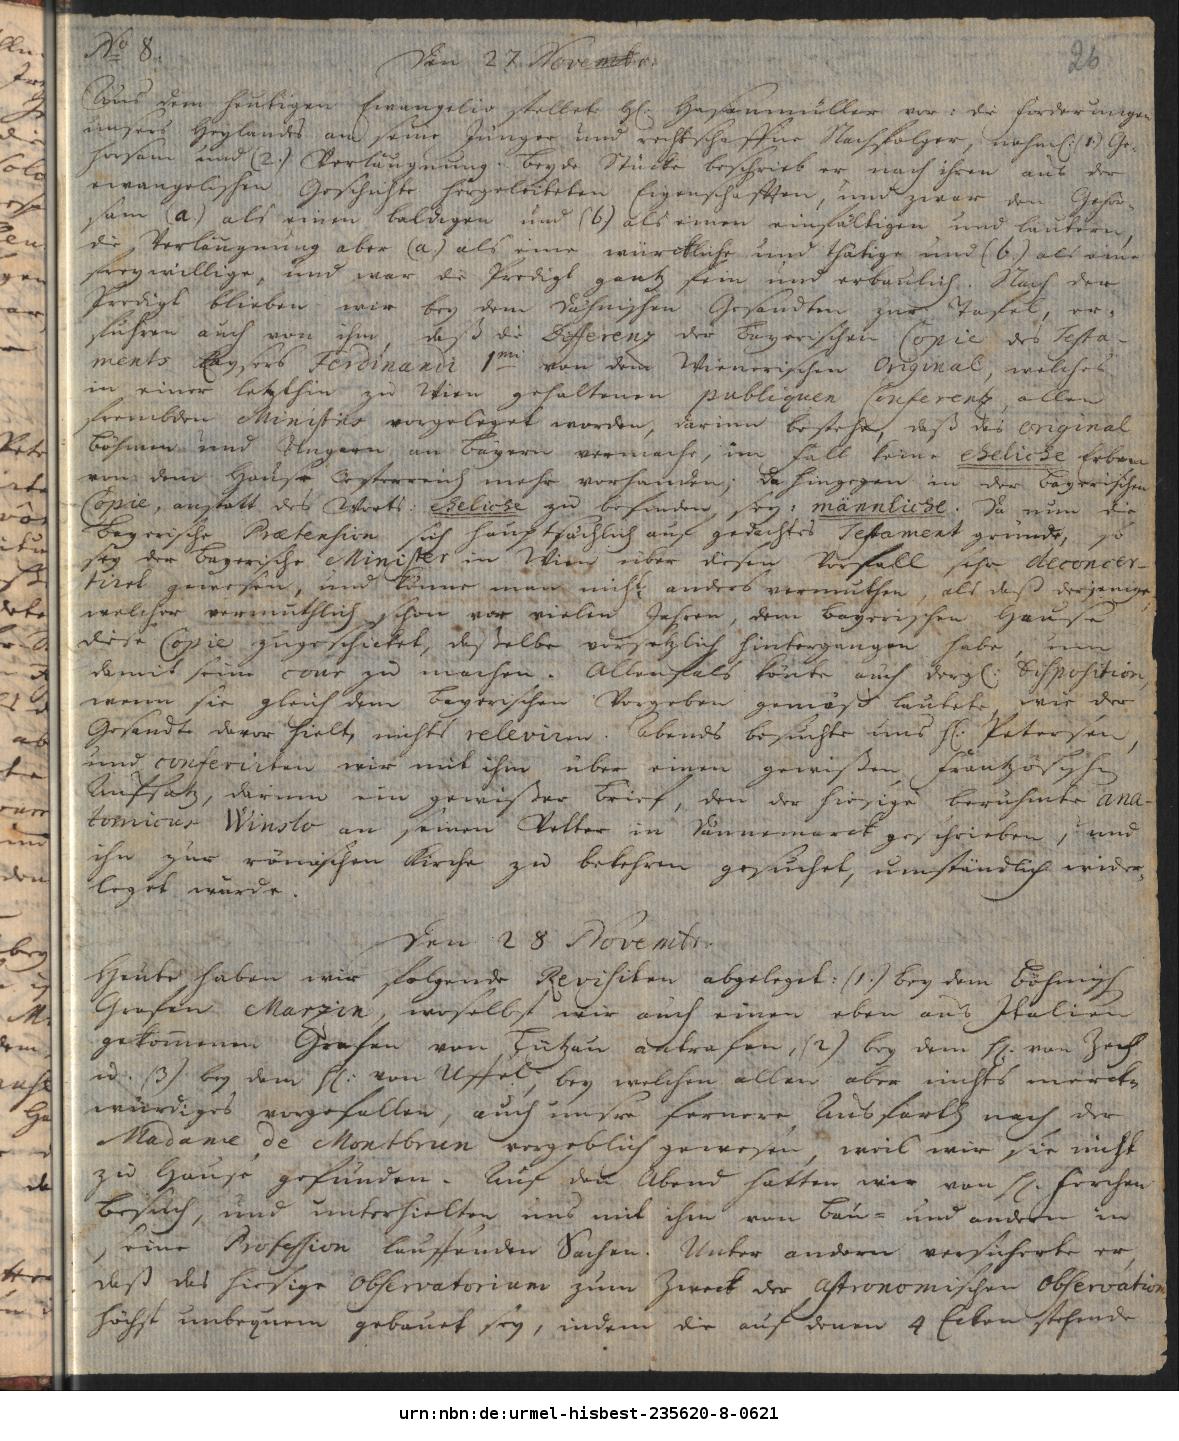 No 8.
26
Den 27 Novembr.
Aus dem heutigen Evangelio stellete H. Hasenmüller vor: die Forderungen
unsers Heylandes an seine Jünger und rechtschaffne Nachfolger, nehml: (1.) Ge-
horsam und (2.) Verläugnung. Beyde Stücke beschrieb er nach ihren aus der
evangelischen Geschichte hergeleiteten Eigenschafften, und zwar den Gehor-
sam (a.) als einen baldigen und (b.) als einen einfältigen und lautern,
die Verläugnung aber (a.) als eine würckliche und thätige und (b.) als eine
freywillige, und war die Predigt gantz fein und erbaulich. Nach der
Predigt blieben wir bey dem Dähnischen Gesandten zur Tafel, er-
fuhren auch von ihm, daß die Differenz der Bayerischen Copie des Testa-
ments Kaysers Ferdinandi 1mi von dem Wienerischen Original, welches
in einer letzthin zu Wien gehaltenen publiquen Conferenz, allen
frembden Ministris vorgeleget worden, darinn bestehe, daß das Original
Böhmen und Ungern an Bayern vermache, im Fall keine eheliche Erben
von dem Hause Oesterreich mehr vorhanden; da hingegen in der Bayerischen
Copie, anstatt des Worts: eheliche zu befinden sey: männliche. Da nun die
Bayerische Prætension sich hauptsächlich auf gedachtes Testament gründe, so
sey der Bayerische Minister in Wien über diesen Vorfall sehr deconcer-
tiret gewesen, und könne man nicht anders vermuthen, als daß derjenige,
welcher vermuthlich schon vor vielen Jahren, dem Bayerischen Hause
diese Copie zugeschicket, dasselbe vorsetzlich hintergangen habe, um
damit seine cour zu machen. Allenfals könte auch dergl: Disposition,
wenn sie gleich dem Bayerischen Vorgeben gemäß lautete, wie der
Gesandte davor hielt, nichts releviren. Abends besuchte uns H. Petersen,
und conferirten wir mit ihm über einen gewißen Frantzösischen
Aufsatz, darinn ein gewißer Brief, den der hiesige berühmte Ana-
tomicus Winslo an seinen Vetter in Dännemarck geschrieben, und
ihn zur römischen Kirche zu bekehren gesuchet, umständlich wider-
leget wurde.
Den 28 Novembr.
Heute haben wir folgende Revisiten abgeleget: (1.) bey dem Böhmisch
Grafen Marzin, woselbst wir auch einen eben aus Italien
gekommenen Grafen von Lützau antrafen, (2) bey dem H. von Zech
u. (3) bey dem H: von Uffel, bey welchen allen aber nichts merck-
würdiges vorgefallen, auch unsre fernere Ausfarth nach der
Madame de Montbrun vergeblich gewesen, weil wir sie nicht
zu Hause gefunden. Auf den Abend hatten wir von H. Forchen
Besuch, und unterhielten uns mit ihm von Bau- und andern in
seine Profession lauffenden Sachen. Unter andern versicherte er,
daß das hiesige Observatorium zum Zweck der Astronomischen Observation
höchst unbequem gebauet sey, indem die auf denen 4 Ecken stehende
urn:nbn:de:urmel-hisbest-235620-8-0621